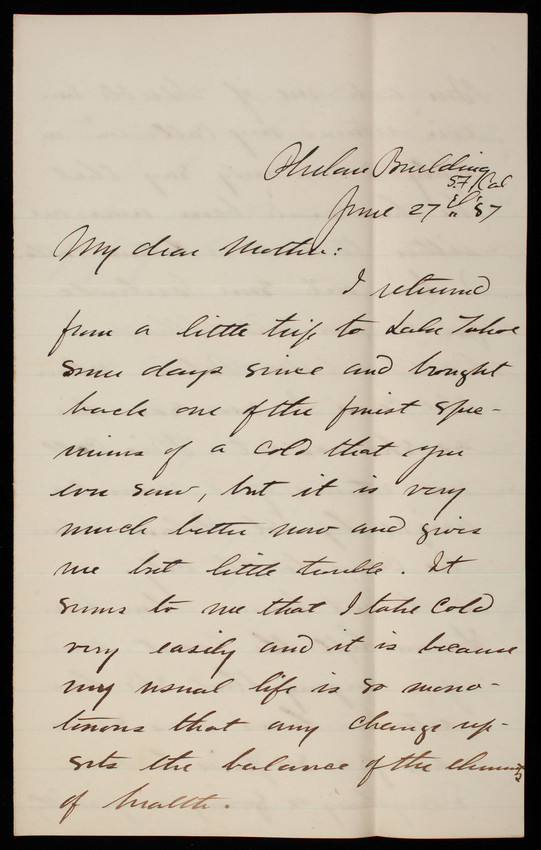 Phelan Building
S.F. Cal
June 27 '87
My dear Mother:
I returned
from a little trip to Lake Tahoe
some days since and brought
back one of the finest spe-
cimens of a cold that you
ever saw, but it is very
much better now and gives
me but little trouble. It
seems to me that I take cold
very easily and it is because
my usual life is so mono-
tonous that any change up-
sets the balance of the elements
of health.